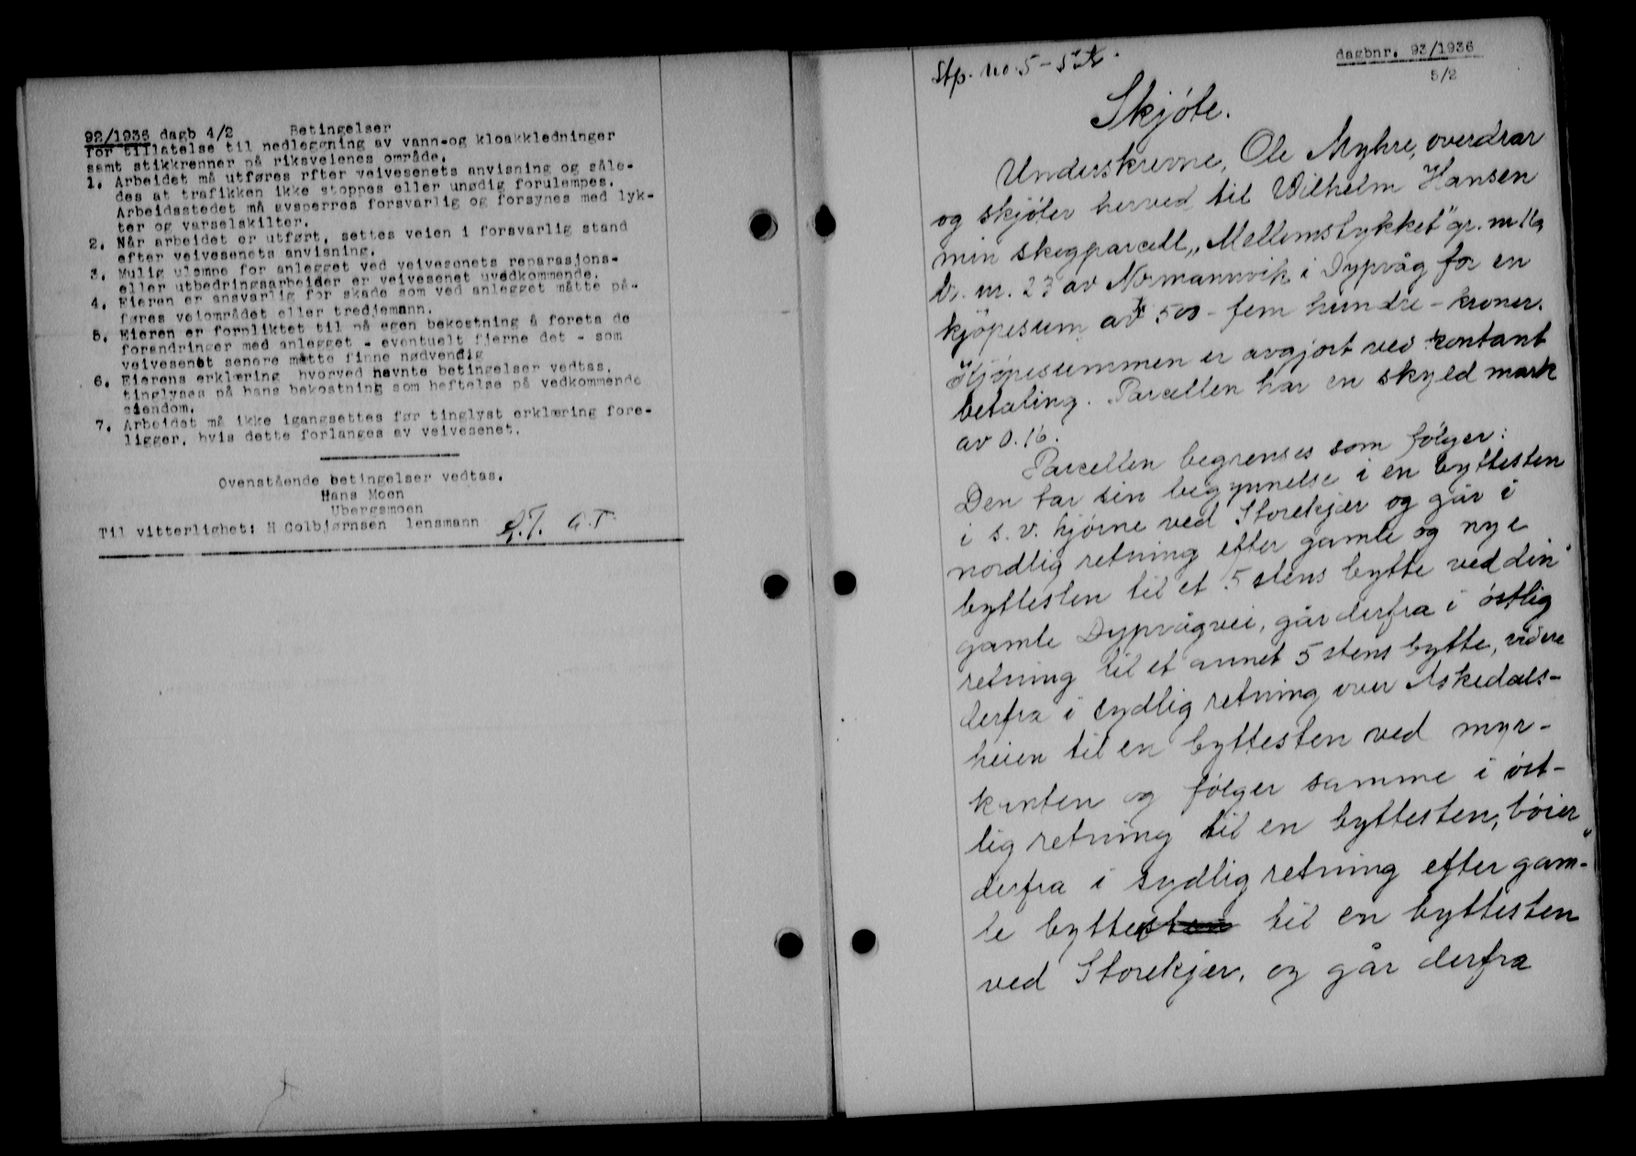 92/1936 dagb 4/2 Betingelser
for tillatelse til nedleggning av vann-og kloakkledninger
samt stikkrenner på riksveienes område.
1. Arbeidet må utføres rfter veivesenets anvisning og såle-
des at trafikken ikke stoppes eller unødig forulempes.
Arbeidsstedet må avsperres forsvarlig og forsynes med lyk-
ter og varselskilter.
2. Når arbeidet er utført, settes veien i forsvarlig stand
efter veivesenets anvisning.
3. Mulig ulempe for anlegget ved veivesenets reparasjons-
eller utbedringsarbeider er veivesenet uvedkommende.
4. Eieren er ansvarlig for skade som ved anlegget måtte på-
føres veiområdet eller tredjemann.
5. Eieren er forpliktet til på egen bekostning å foreta de
forandringer med anlegget - eventuelt fjerne det - som
veivesenet senere måtte finne nødvendig
6. Eierens erklæring hvorved nevnte betingelser vedtas,
tinglyses på hans bekostning som heftelse på vedkommende
eiendom.
7. Arbeidet må ikke igangsettes før tinglyst erklæring fore-
ligger, hvis dette forlanges av veivesenet.
Ovenstående betingelser vedtas.
Hans Moen
Ubergsmoen
Til vitterlighet: H Colbjørnsen lensmann
dagbnr. 93/1936
5/2
Stp. no. 5 -
Skjöte.
Underskrevne, Ole Myhre, overdrar
og skjöter herved til Wilhelm Hansen
min skogparcell „Mellemstykket" gr. nr. 16
br. nr. 23 av Normannvik i Dypvåg for en
kjöpesum av kr 500 - fem hundre - kroner.
Kjöpesummen er avgjort ved kontant
betaling. Parcellen har en skyld mark
av 0.16.
Parcellen begrenses som fölger:
Den tar sin begynnelse i en byttesten
i s. v. hjörne ved Storekjær og går i
nordlig retning efter gamle og nye
byttesten til et 5 stens bytte ved den
gamle Dypvågvei, går derfra i östlig
retning til et annet 5 stens bytte, videre
derfra i sydlig retning over Askedals-
heien til en byttesten ved myr-
kanten og fölger samme i öst-
lig retning til en byttesten, böier
derfra i sydlig retning efter gam-
le bytte til en byttesten
ved Storekjær, og går derfra